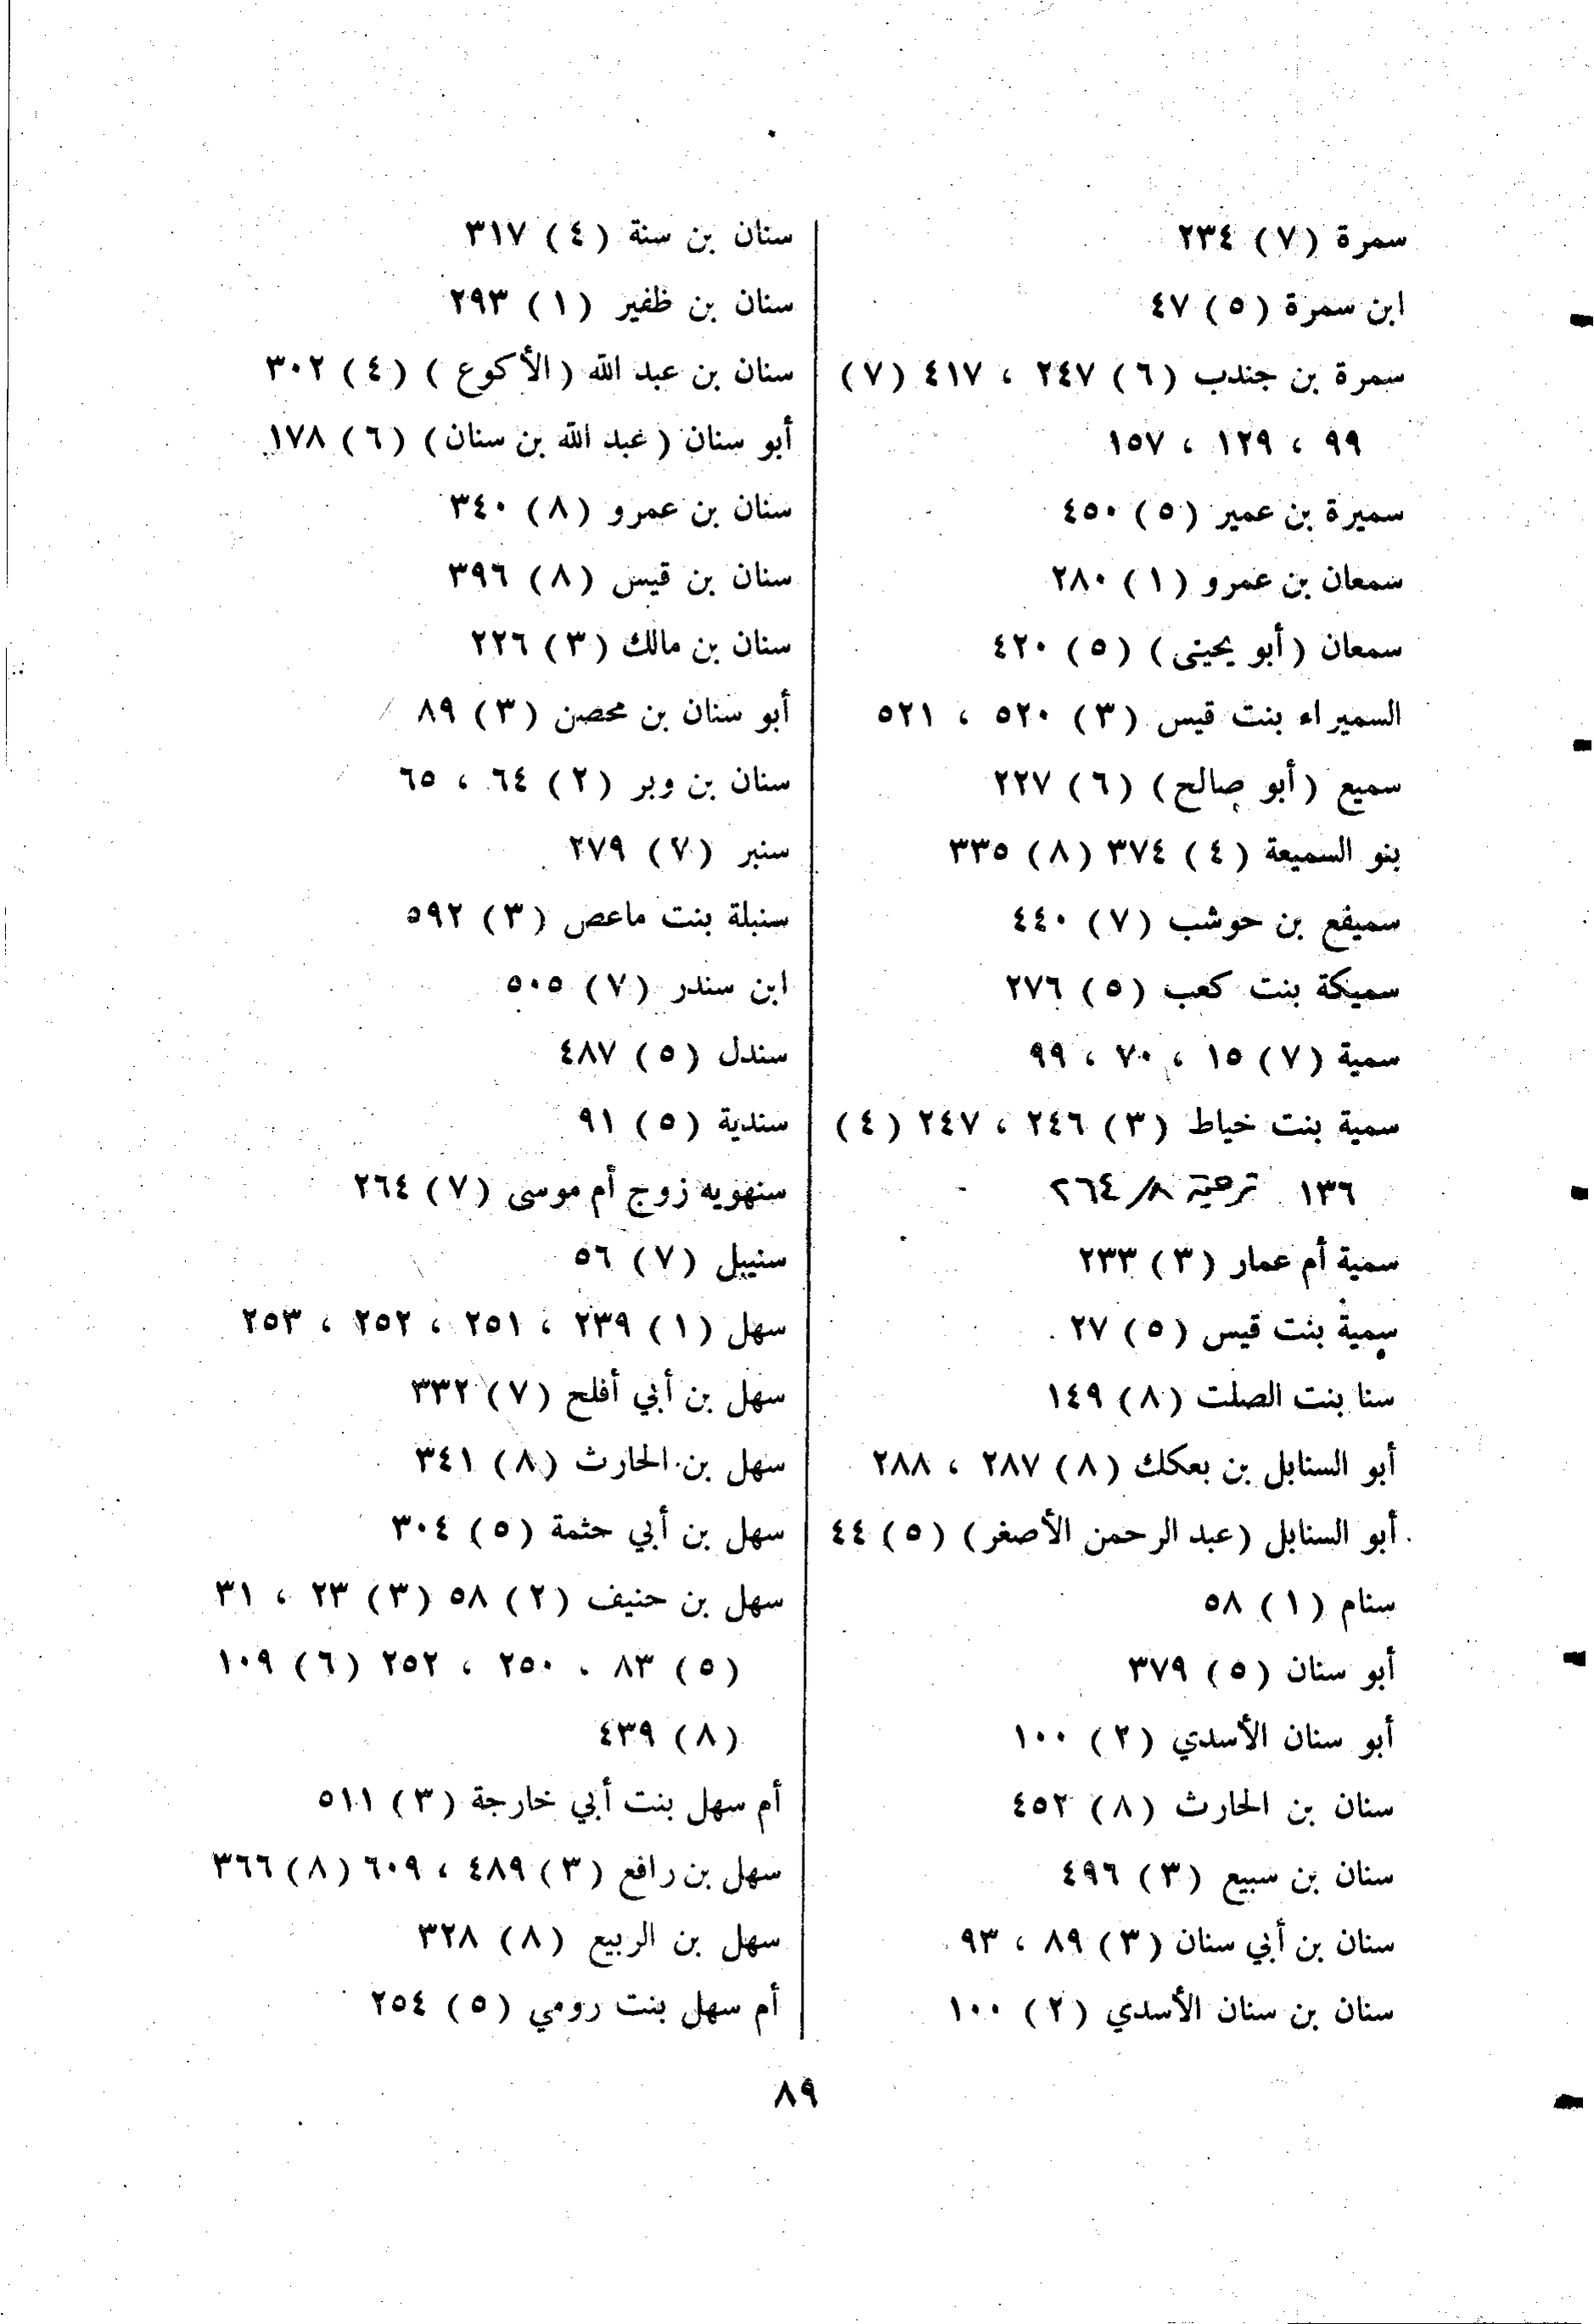 سمرة (٧) ٢٣٤
ابن سمرة (٥) ٤٧
سمرة بن جندب (٦) ٢٤٧ ، ٤١٧ (٧)
٩٩ ، ١٢٩ ، ١٥٧
سميرة بن عمير (٥) ٤٥٠
سمعان بن عمرو (١) ٢٨٠
سمعان (أبو يحيى) (٥) ٤٢٠
السميراء بنت قيس (٣) ٥٢٠ ، ٥٢١
سميع (أبو صالح) (٦) ٢٢٧
بنو السميعة (٤) ٣٧٤ (٨) ٣٣٥
سميفع بن حوشب (٧) ٤٤٠
سميكة بنت كعب (٥) ٢٧٦
سمية (٧) ١٥ ، ٧٠ ، ٩٩
سمية بنت خياط (٣) ٢٤٦ ، ٢٤٧ (٤)
١٣٦ ترجمة ٨/ ٢٦٤
سمية أم عمار (٣) ٢٣٣
سمية بنت قيس (٥) ٢٧
سنا بنت الصلت (٨) ١٤٩
أبو السنابل بن بعكك (٨) ٢٨٧ ، ٢٨٨
أبو السنابل (عبد الرحمن الأصغر) (٥) ٤٤
سنام (١) ٥٨
أبو سنان (٥) ٣٧٩
أبو سنان الأسدي (٢) ١٠٠
سنان بن الحارث (٨) ٤٥٢
سنان بن سبيع (٣) ٤٩٦
سنان بن أبي سنان (٣) ٨٩ ، ٩٣
سنان بن سنان الأسدي (٢) ١٠٠
سنان بن سنة (٤) ٣١٧
سنان بن ظفير (١) ٢٩٣
سنان بن عبد الله (الأكوع) (٤) ٣٠٢
أبو سنان (عبد الله بن سنان) (٦) ١٧٨
سنان بن عمرو (٨) ٣٤٠
سنان بن قيس (٨) ٣٩٦
سنان بن مالك (٣) ٢٢٦
أبو سنان بن محصن (٣) ٨٩
سنان بن وبر (٢) ٦٤ ، ٦٥
سنبر (٧) ٢٧٩
سنبلة بنت ماعص (٣) ٥٩٢
ابن سندر (٧) ٥٠٥
سندل (٥) ٤٨٧
سندية (٥) ٩١
سنهويه زوج أم موسى (٧) ٢٦٤
سنيبل (٧) ٥٦
سهل (١) ٢٣٩ ، ٢٥١ ، ٢٥٢ ، ٢٥٣
سهل بن أبي أفلح (٧) ٣٣٢
سهل بن الحارث (٨) ٣٤١
سهل بن أبي حثمة (٥) ٣٠٤
سهل بن حنيف (٢) ٥٨ (٣) ٢٣ ، ٣١
(٥) ٨٣ ، ٢٥٠ ، ٢٥٢ (٦) ١٠٩
(٨) ٤٣٩
أم سهل بنت أبي خارجة (٣) ٥١١
سهل بن رافع (٣) ٤٨٩ ، ٦٠٩ (٨) ٣٦٦
سهل بن الربيع (٨) ٣٢٨
أم سهل بنت رومي (٥) ٢٥٤
٨٩